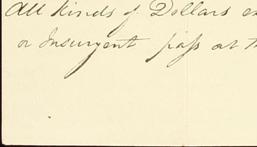 All Kinds of Dollars
or Insurgent pass at